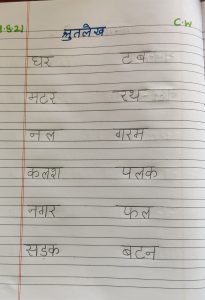 .8.21 C.W
श्रुतलेख
घर टब
मटर रथ
नल गरम
कलश पलक
नगर फल
सड़क बटन